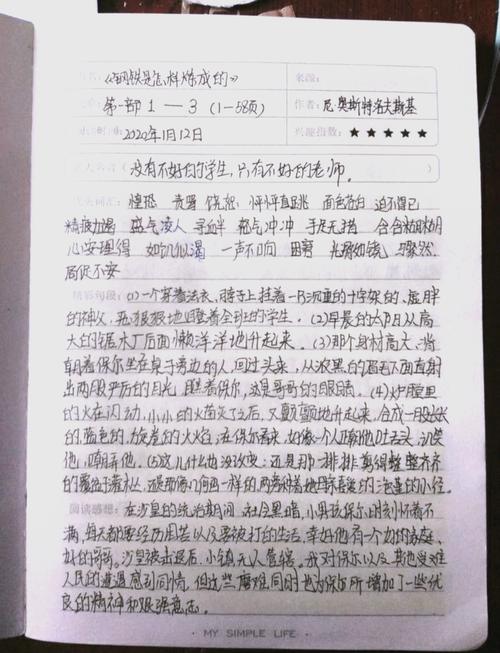 书名：《钢铁是怎样炼成的》 来源：
第一部 1—3 (1-58页) 作者：尼·奥斯特洛夫斯基
时间：2020年1月12日 兴趣指数：★★★★★
没有不好的学生，只有不好的老师。
惶恐 责骂 饶恕 怦怦直跳 面色苍白 迫不得已
精疲力竭 盛气凌人 寻衅 怒气冲冲 手足无措
心安理得 如饥似渴 一声不响 骤然
局促不安
精彩句段：(1)一个穿着法衣，脖子上挂着一只沉重的十字架的、虚胖
的神父，恶狠狠地瞪着全班的学生。(2)早晨的太阳从高
大的锯木厂后面懒洋洋地升起来。(3)那个身材高大、背
朝着保尔坐在桌子旁边的人，回过头来，从浓黑的眉毛下面直射
出两股严厉的目光，瞪着保尔，这是哥哥的眼睛。(4)炉膛里
的火在闪动，小小的火苗灭了之后，又颤颤地升起来，合成一股长长
的、蓝色的、旋卷的火焰。在保尔看来，好像一个人正朝他吐舌头，讥笑
他，嘲弄他。(5)这儿什么也没改变：还是那一排排剪得整整齐齐
的灌木丛，还是那几何图一样的，两旁种着她母亲喜爱的三色堇的小径。
阅读感想：在沙皇的统治期间，社会黑暗，小男孩保尔时刻怀着不
满，每天都要经历困苦以及要被打的生活，幸好他有一个好的家庭，
好的哥哥。沙皇被击退后，小镇无人管辖。我对保尔以及其他受难
人民的遭遇感到同情，但这些磨难同时也为保尔所增加了一些优
良的精神和艰强意志。
MY SIMPLE LIFE